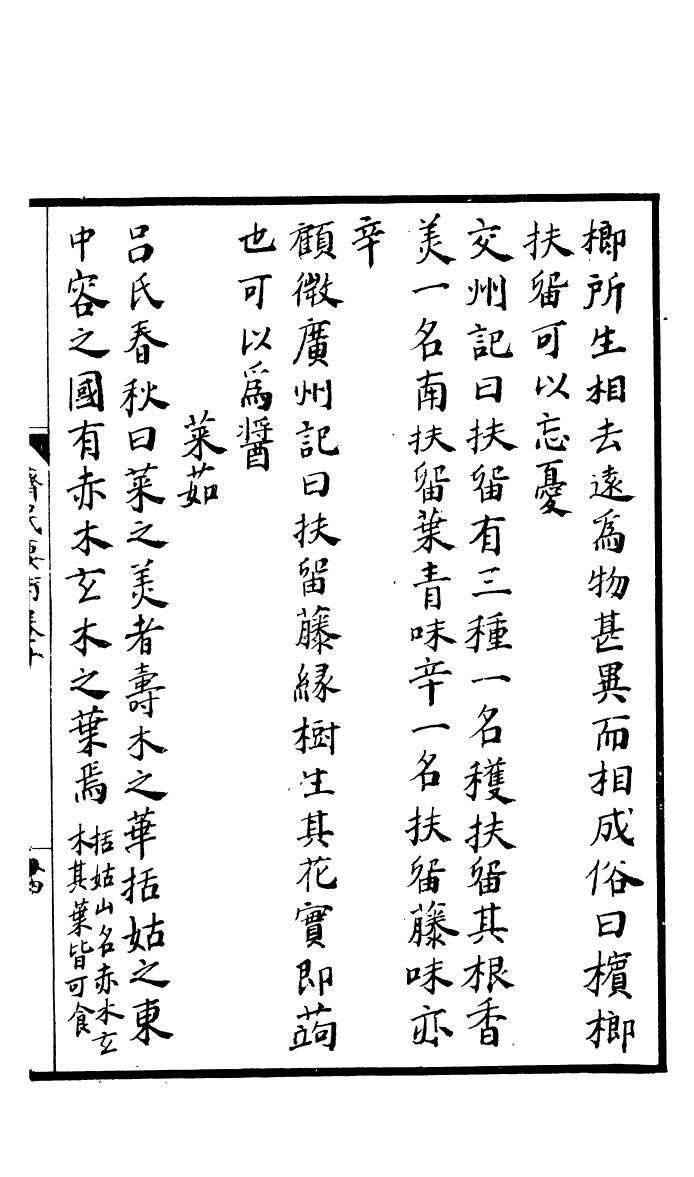 榔所生相去遠為物甚異而相成俗曰檳榔
扶留可以忘憂
交州記曰扶留有三種一名穫扶留其根香
美一名南扶留葉青味辛一名扶留藤味亦
辛
顧微廣州記曰扶留藤緣樹生其花實即蒟
也可以為醬
菜茹
呂氏春秋曰菜之美者壽木之華括姑之東
中容之國有赤木玄木之葉焉
括姑山名赤木玄
木其葉皆可食
齊民要術卷十